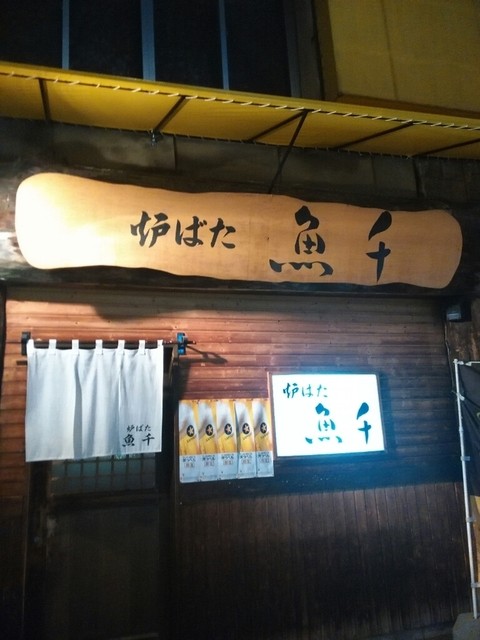 炉ばた 魚千
炉ばた
魚千
炉ばた
魚千